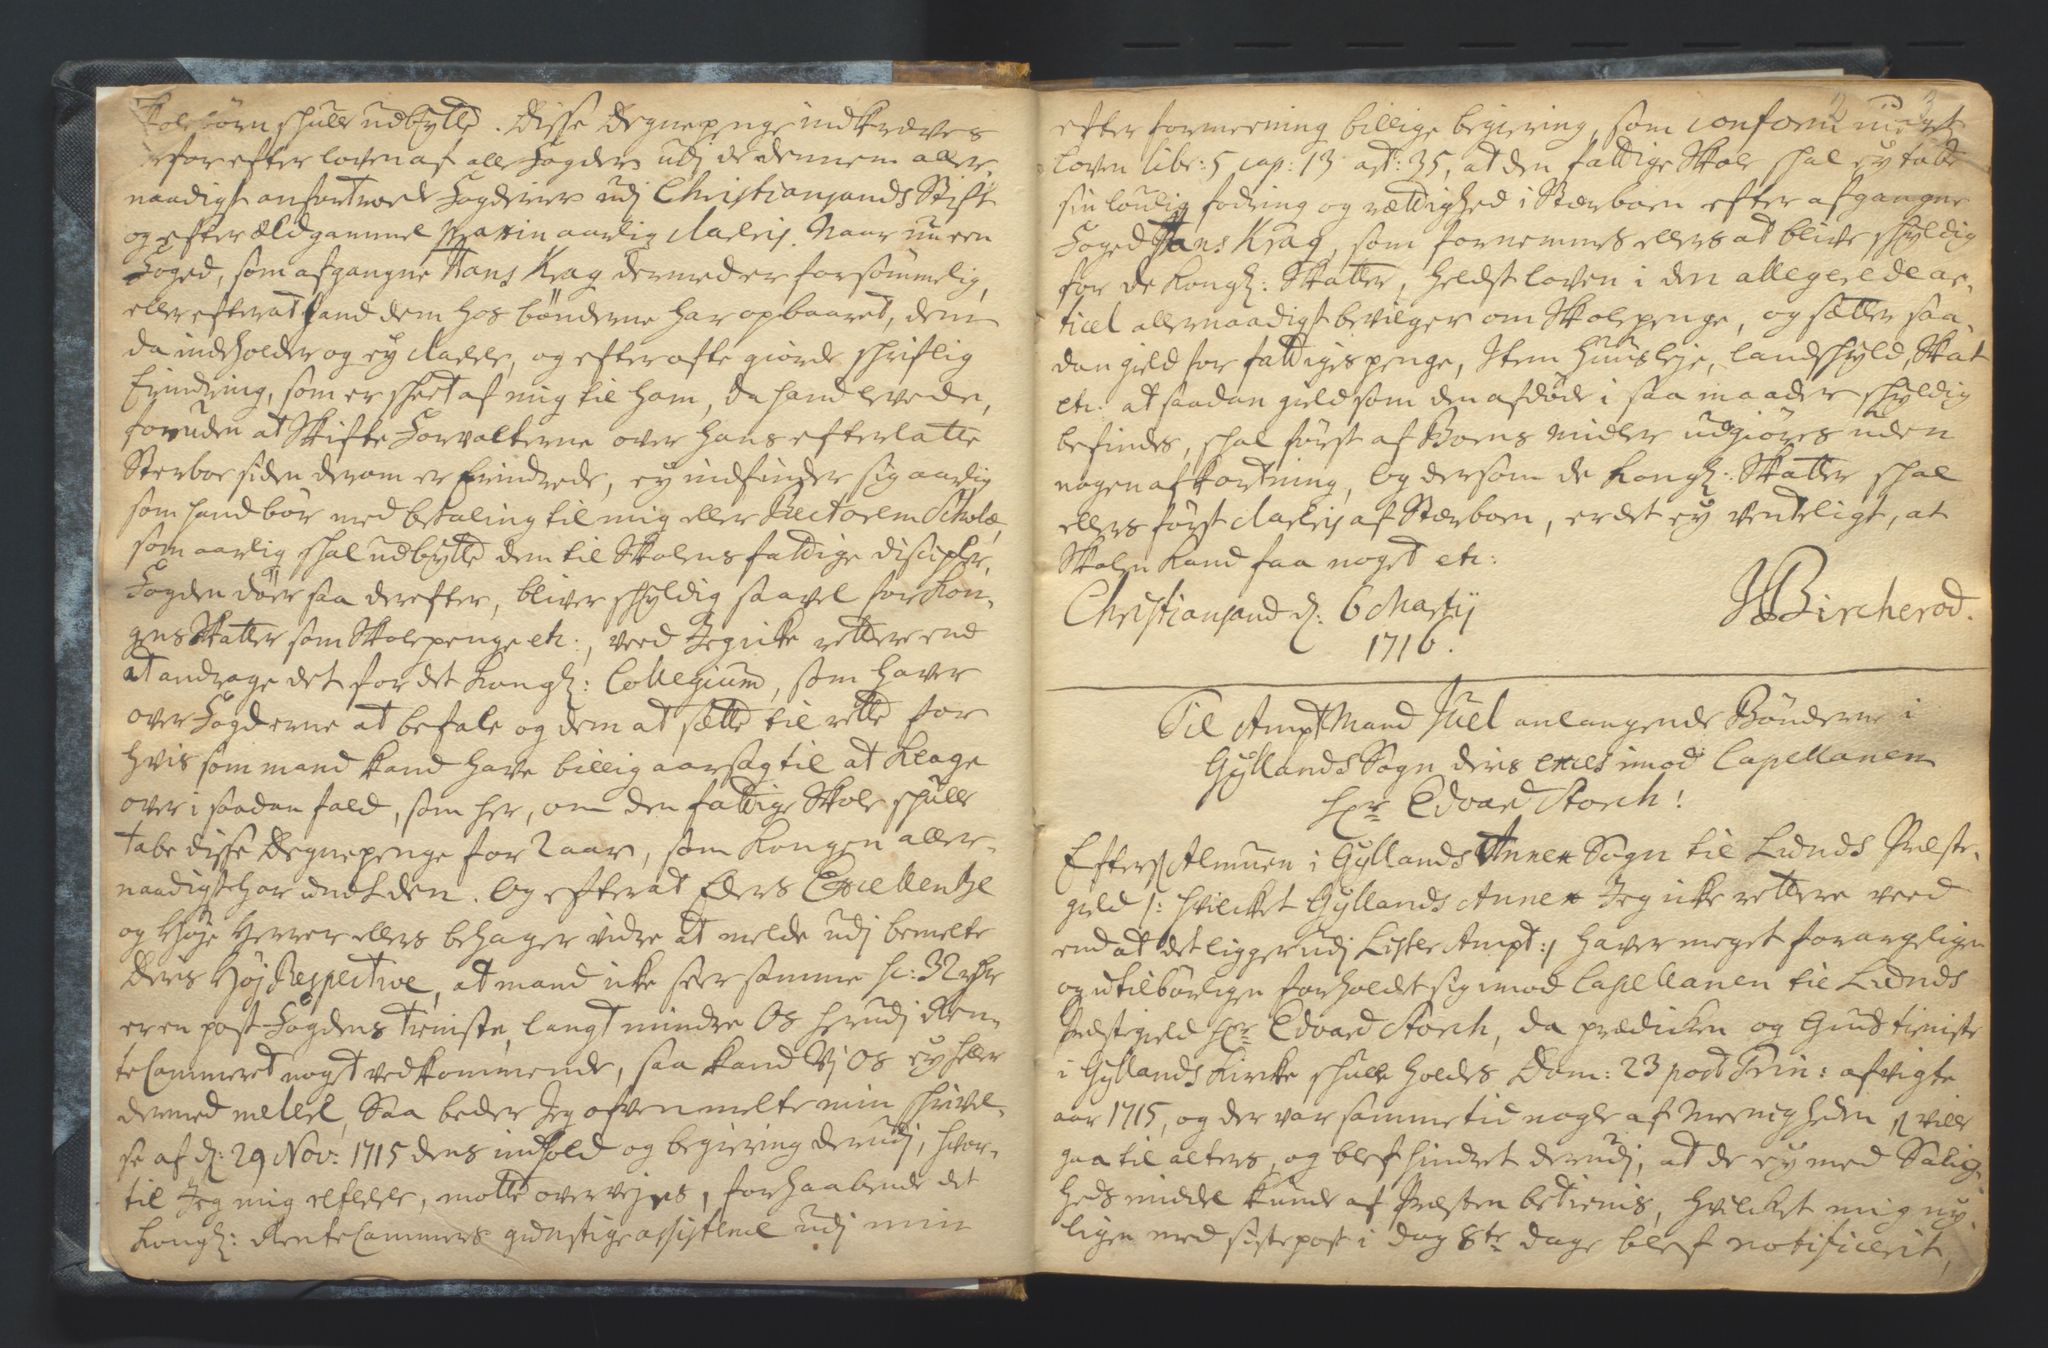 Skolebörn skulle udbÿtte. Disse Degnepenge indkræves
derfor efter loven af alle Fogder udj de dennem aller-
naadigst anfortroede Fogderier udj Christiansands Stift
og efter ældgammel Maxim aarlig clareris. Naar nu een
Foged, som afgangne Hans Krag dermed er forsömmelig,
eller efterat hand dem hos bönderne har opbaaret, dem
da indeholder og eÿ clarere, og efter ofte giorde skriftlig
Erindring, som er skeet af mig til ham, da hand levede,
foruden at Skifte Forvalterne over hans efterlatte
Sterboe siden derom er Erindrede, eÿ indfinder sig aarlig
som hand bör med betaling til mig eller Rectorem Scholæ,
som aarlig skal udbÿtte dem til Skolens fattige discipler,
Fogden döer saa derefter, bliver skÿldig saavel for Kon-
gens Skatter som Skolepenge etc:, veed Jeg icke rettere end
at andrage det for det Kongl: Collegium, som haver
over Fogderne at befale og dem at sætte til rette for
hvis som mand kand have billig aarsag til at klage
over i saadan fald, som her, om den fattige Skole skulle
tabe disse Degnepenge for 2 aar, som Kongen aller-
naadigst har undt den. Og efterat Eders Excellentze
og Höje Herrer ellers behager vidre at melde udj bemelte
Deris Höj Respective, at mand icke seer samme sc: 32 rdr
er en post Fogdens tieniste, langt mindre Os herudj Ren-
teCammeret noget vedkommende, saa kand Vj Os eÿ heller
dermed melere, Saa beder Jeg ofvenmelte min skrivel-
se af d: 29 Nov: 1715 dens indhold og begiering derudj, hvor-
til Jeg mig refererer, motte overvejes, forhaabende det
Kongl: RenteCammers gunstige assistence udj min
efter formeening billige begiering, som conform med
Loven libr: 5 cap: 13 art: 35, at den fattige Skole skal eÿ tabe
sin lovlig fodring og rættighed i Stærboen efter afgangne
Foged Hans Krag, som fornemmes ellers at blive skÿldig
for de Kongl: Skatter, helst loven i den allegerede ar-
ticel allernaadigst bevilger om Skolepenge, og sætter saa-
dan gield for fattiges penge, Item Huusleje, landskÿld, Skat
etc. at saadan gield som den afdöde i saa maader skÿldig
befindes, skal först af Boens midler udgiöres uden
nogen afkortning, Og dersom de Kongl: Skatter skal
ellers först clareris af Stærboen, er det eÿ venteligt, at
Skolen kand faa noget etc:
Christiansand d: 6 Martij
1716.
JBircherod.
Til AmptMand Juel anlangende Bönderne i
Gÿllands Sogn deris exces imod Capellanen
Hr Edvard Storch!
Eftersom Almuen i Gÿllands Annex Sogn til Lunds Præste-
gield /: hvilcket Gÿllands Annex Jeg icke rettere veed
end at det ligger udj Lister Ampt :/ haver meget forargeligen
og utilbörligen forholdet sig imod Capellanen til Lunds
Præstegield Hr Edvard Storch, da prædicken og Guds tieniste
i Gÿllands Kircke skulle holdes Dom: 23 post Trin: afvigte
aar 1715, og der var samme tid nogle af Meenigheden som ville
gaa til alters, og blef hindret derudj, at de eÿ med Salig-
heds middel kunde af Præsten betienis, hvilcket mig nÿ-
ligen med siste post i dag 8te dage blef notificerit,